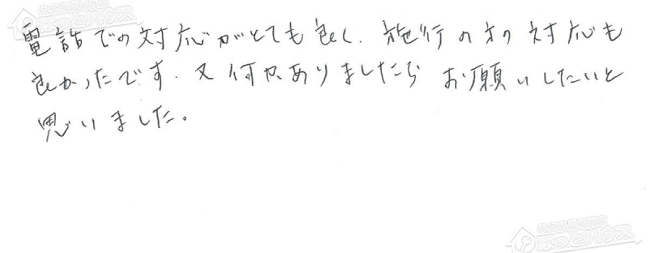 電話での対応がとても良く、施行の方の対応も
良かったです。又何かありましたら お願いしたいと
思いました。